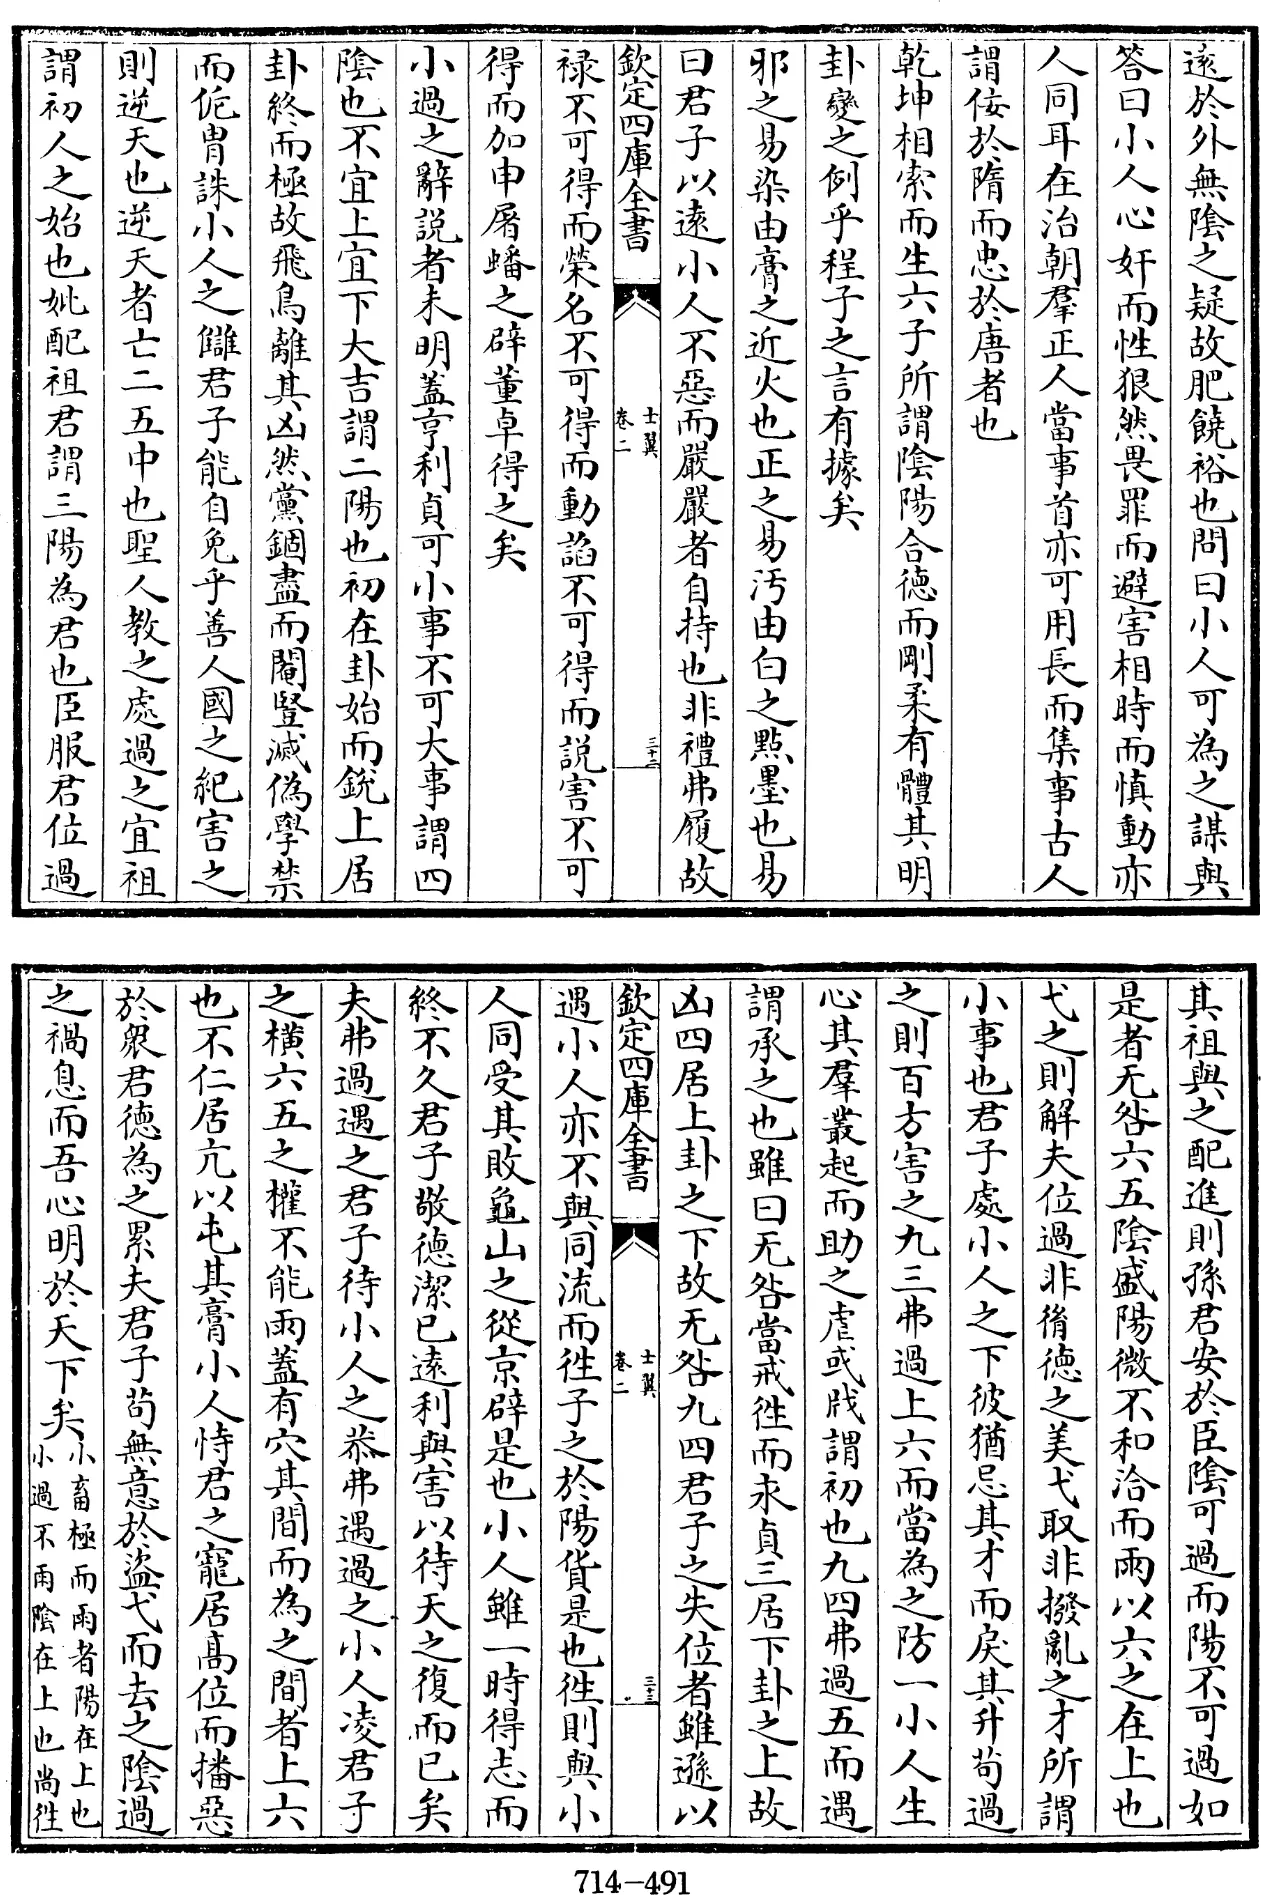 逺於外無隂之疑故肥饒裕也問曰小人可為之謀與
答曰小人心奸而性狠然畏罪而避害相時而慎動亦
人同耳在治朝羣正人當事首亦可用長而集事古人
謂佞於隋而忠於唐者也
乾坤相索而生六子所謂隂陽合德而剛柔有體其明
卦變之例乎程子之言有據矣
邪之易染由膏之近火也正之易汚由白之㸃墨也易
曰君子以逺小人不惡而嚴嚴者自持也非禮弗履故
欽定四庫全書
士翼
卷二
三十二
禄不可得而榮名不可得而動謟不可得而説害不可
得而加申屠蟠之辟董卓得之矣
小過之辭説者未明蓋亨利貞可小事不可大事謂四
隂也不宜上宜下大吉謂二陽也初在卦始而銳上居
卦終而極故飛鳥離其凶然黨錮盡而閹豎滅偽學禁
而侂胄誅小人之讎君子能自免乎善人國之紀害之
則逆天也逆天者亡二五中也聖人教之處過之宜祖
謂初人之始也妣配祖君謂三陽為君也臣服君位過
其祖與之配進則孫君安於臣隂可過而陽不可過如
是者无咎六五隂盛陽微不和洽而雨以六之在上也
弋之則解夫位過非脩德之美弋取非撥亂之才所謂
小事也君子處小人之下彼猶忌其才而戾其升苟過
之則百方害之九三弗過上六而當為之防一小人生
心其羣叢起而助之虐或戕謂初也九四弗過五而遇
謂承之也雖曰无咎當戒徃而永貞三居下卦之上故
凶四居上卦之下故无咎九四君子之失位者雖遜以
欽定四庫全書
士翼
卷二
三十三
遇小人亦不與同流而徃子之於陽貨是也徃則與小
人同受其敗龜山之從京辟是也小人雖一時得志而
終不久君子敬德潔已逺利與害以待天之復而已矣
夫弗過遇之君子待小人之恭弗遇過之小人凌君子
之橫六五之權不能雨蓋有穴其間而為之間者上六
也不仁居亢以屯其膏小人恃君之寵居髙位而播惡
於衆君德為之累夫君子苟無意於盜弋而去之隂過
之禍息而吾心明於天下矣小畜極而雨者陽在上也
小過不雨隂在上也尚徃
714-491